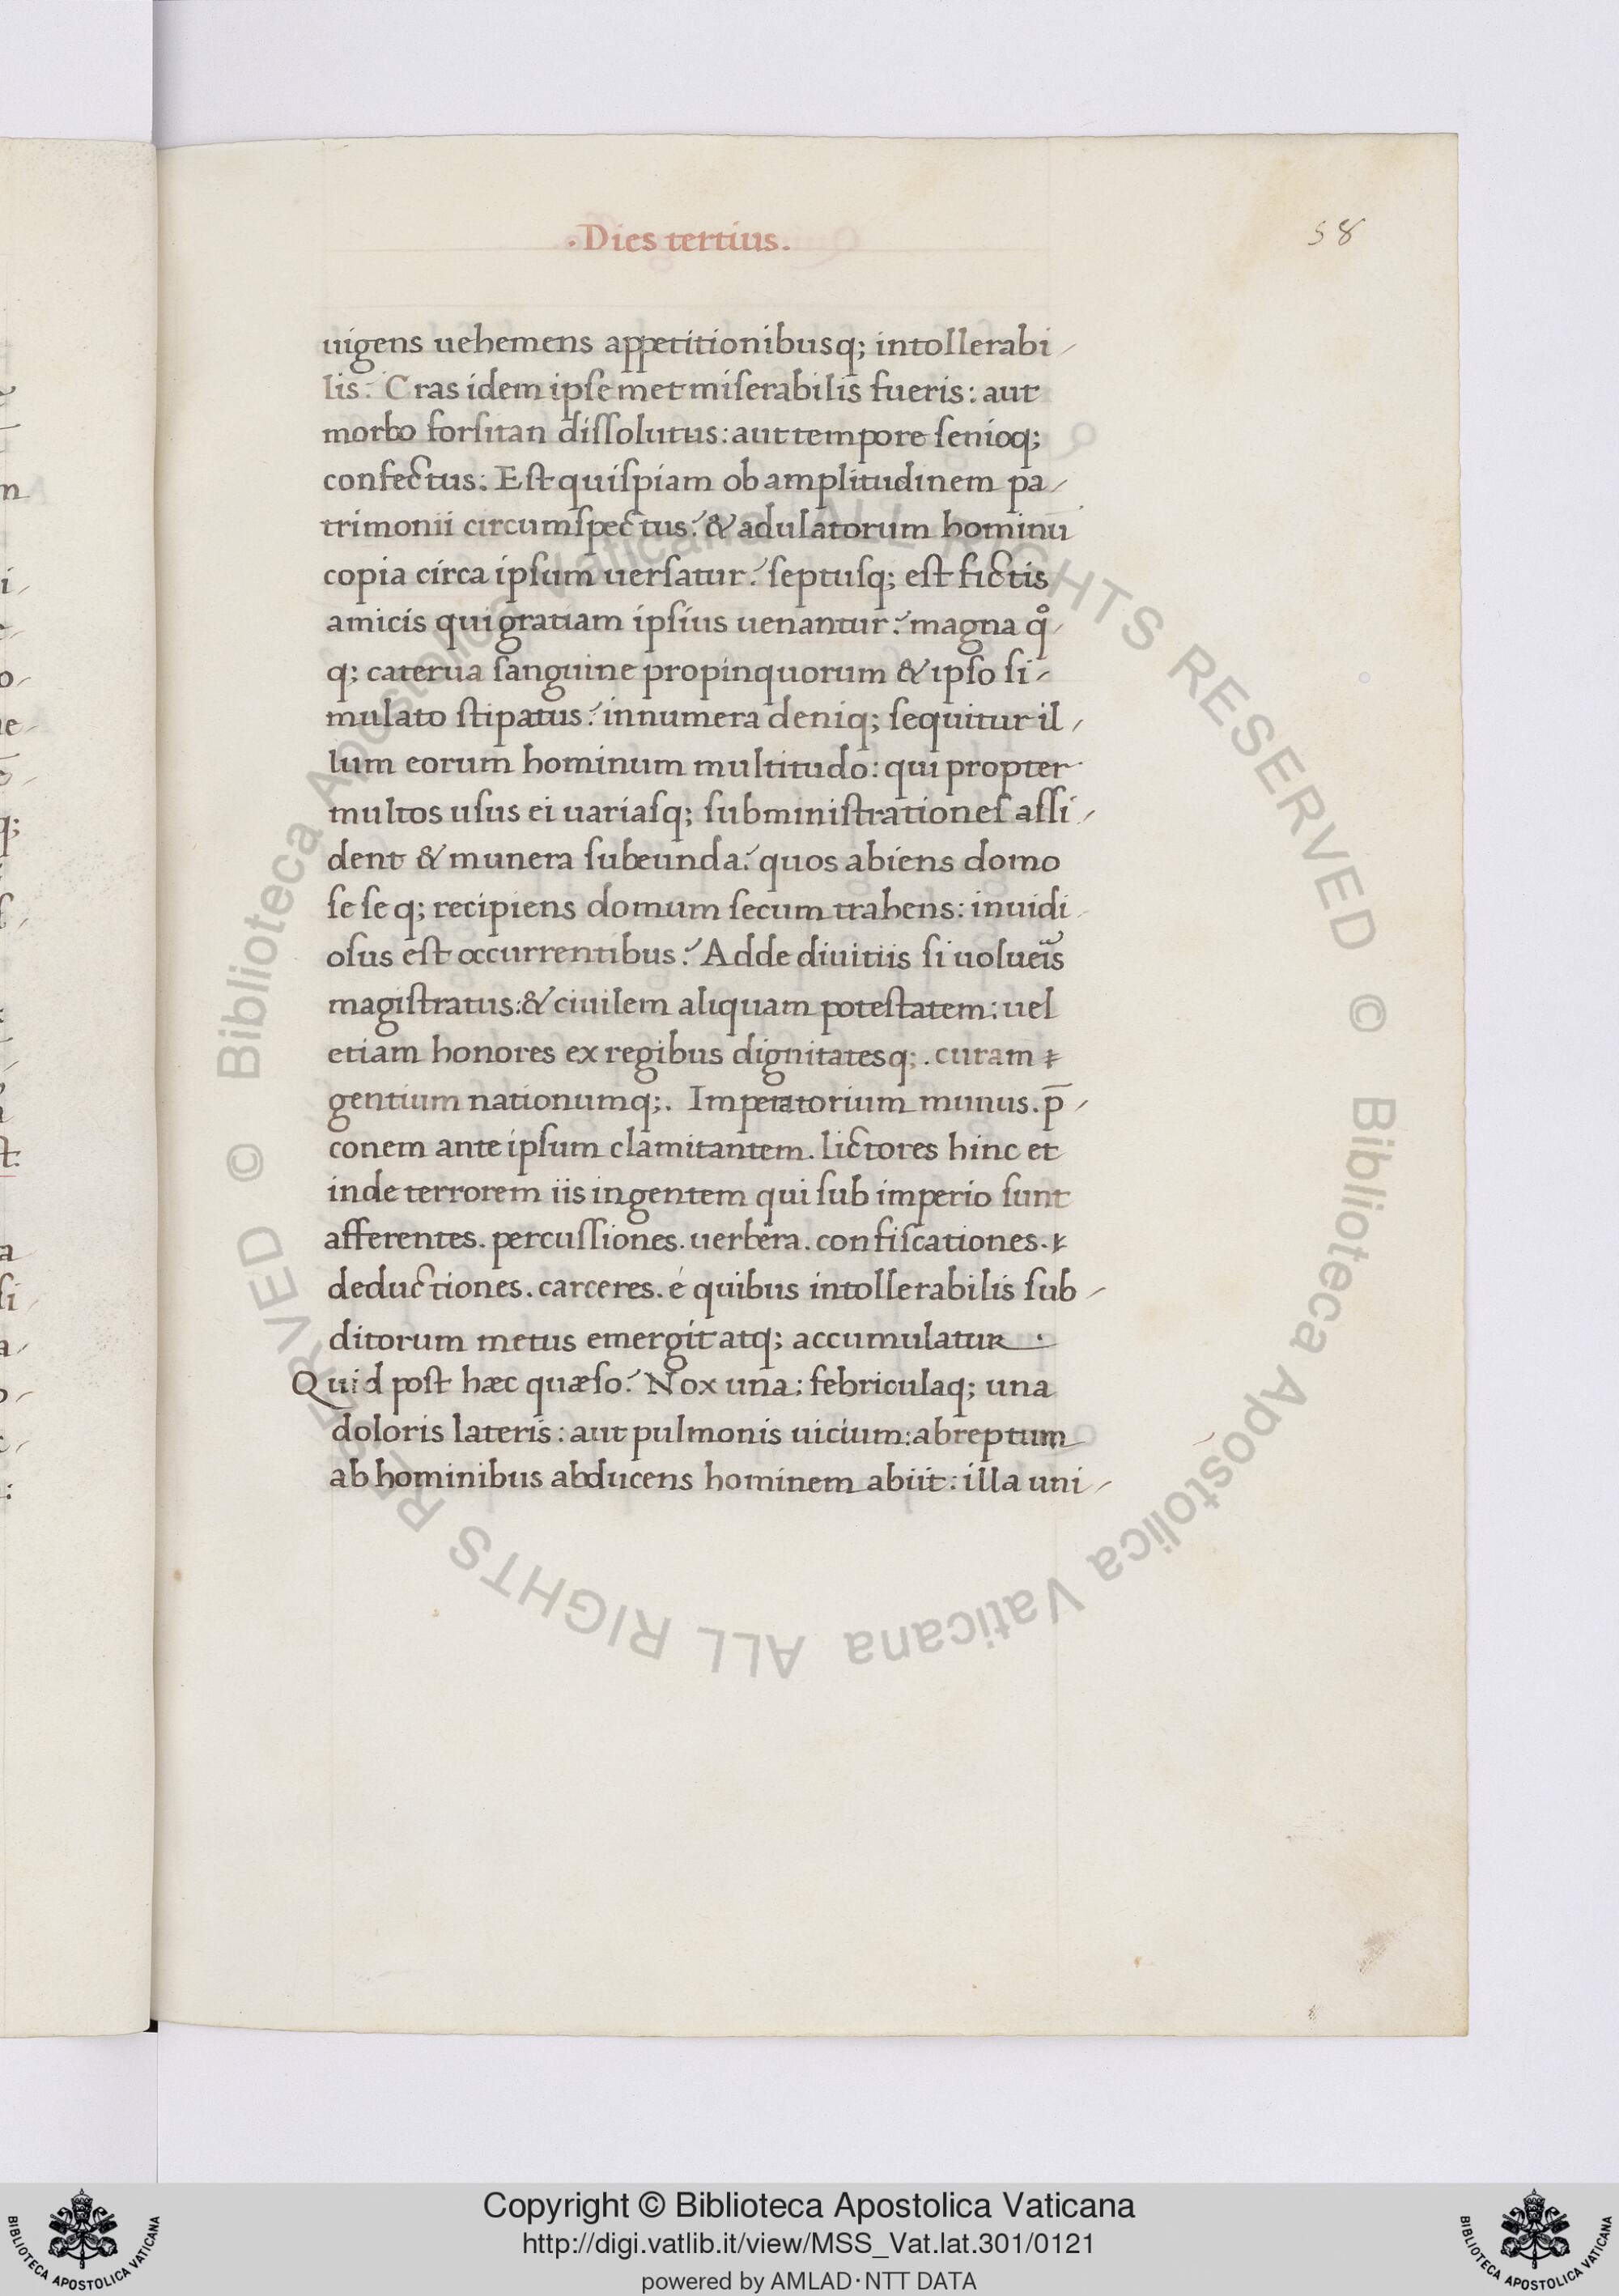 ·Dies tertius.
58
uigens uehemens appetitionibusq; intollerabi
lis. Cras idem ipse met miserabilis fueris: aut
morbo forsitan dissolutus: aut tempore senioq;
confectus: Est quispiam ob amplitudinem pa
trimonii circumspectus. & adulatorum hominū
copia circa ipsum uersatur. septusq; est fictis
amicis qui gratiam ipsius uenantur. magna qͦ
q; caterua sanguine propinquorum & ipso si
mulato stipatus. innumera deniq; sequitur il
lum eorum hominum multitudo: qui propter
multos usus ei uariasq; subministrationes assi
dent & munera subeunda. quos abiens domo
se se q; recipiens domum secum trahens: inuidi
osus est occurrentibus. Adde diuitiis si uolueis
magistratus: & ciuilem aliquam potestatem: uel
etiam honores ex regibus dignitatesq;. curam
gentium nationumq;. Imperatorium munus. p̄
conem ante ipsum clamitantem. lictores hinc et
inde terrorem iis ingentem qui sub imperio sunt
afferentes. percussiones. uerbera. confiscationes.
deductiones. carceres. é quibus intollerabilis sub
ditorum metus emergit atq; accumulatur ·
Quid post hæc quæso. Nox una: febriculaq; una
doloris lateris: aut pulmonis uicium: abreptum
ab hominibus abducens hominem abiit: illa uni
© Biblioteca Apostolica Vaticana ALL RIGHTS RESERVED © Biblioteca Apostolica Vaticana ALL RIGHTS RESERVED
Copyright © Biblioteca Apostolica Vaticana
http://digi.vatlib.it/view/MSS_Vat.lat.301/0121
powered by AMLAD·NTT DATA
BIBLIOTECA APOSTOLICA VATICANA
BIBLIOTECA APOSTOLICA VATICANA